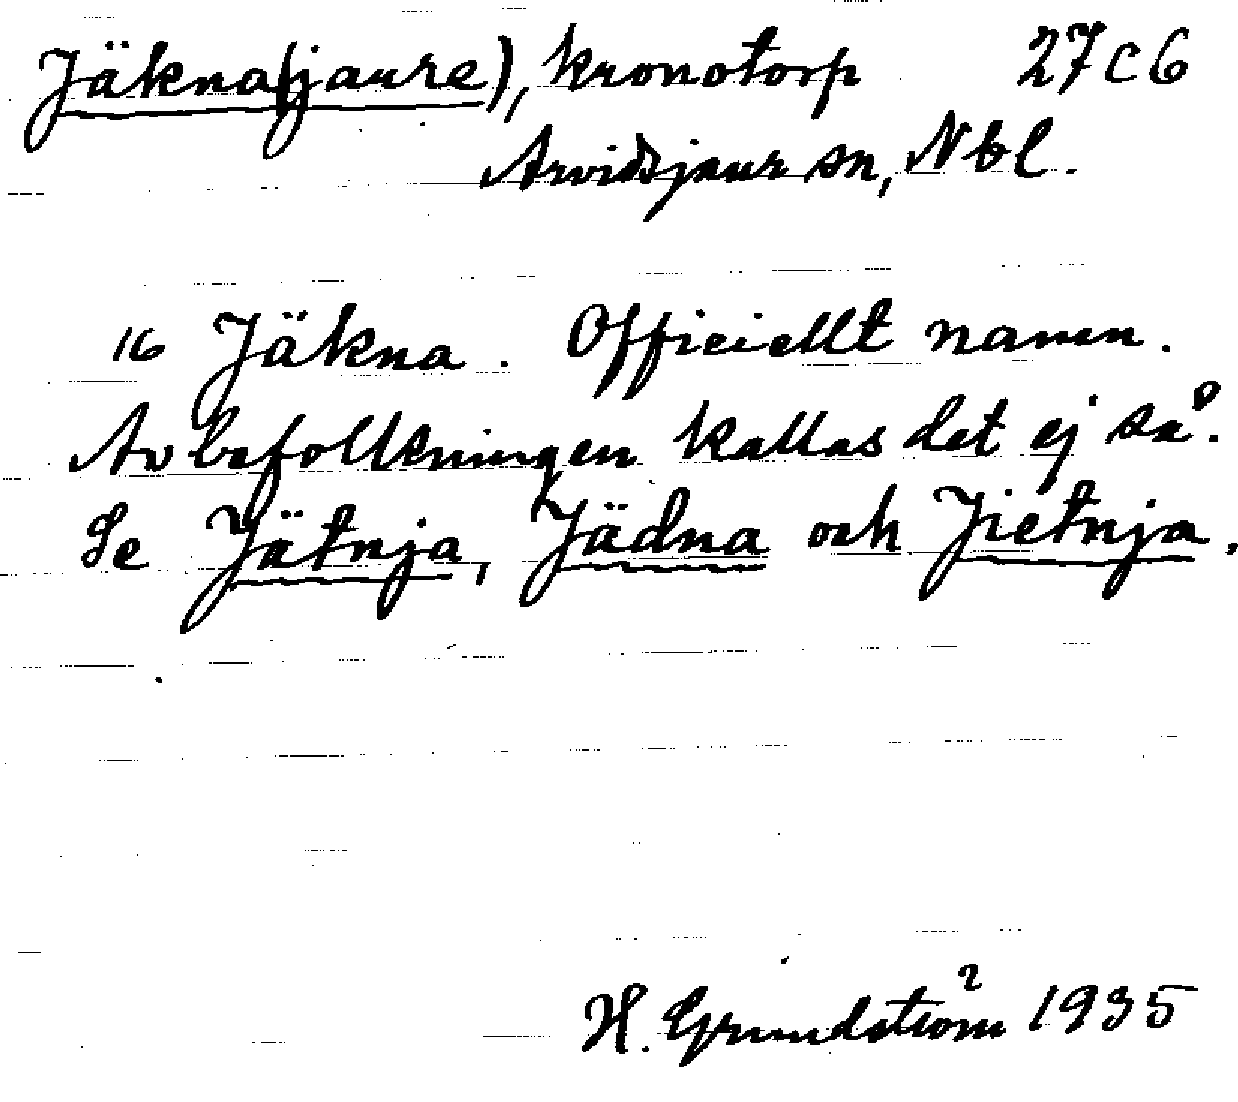 Jäkna(jaure), kronotorp 27 C 6
Arvidsjaur sn, Nbl.
16 Jäkna. Officiellt namn.
Av befolkningen kallas det ej så.
Se Jätnja, Jädna och Jietnja.
H. Grundström 1935